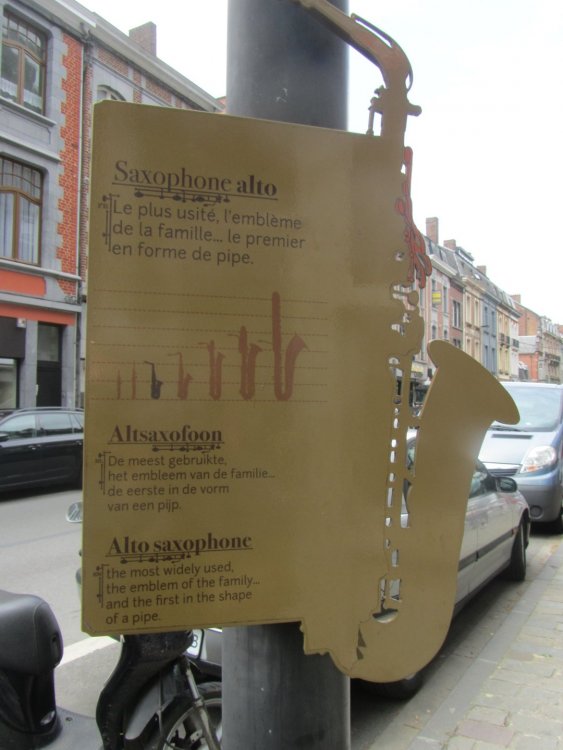 Saxophone alto
Le plus usité, l'emblème
de la famille... le premier
en forme de pipe.
Altsaxofoon
De meest gebruikte,
het embleem van de familie...
de eerste in de vorm
van een pijp.
Alto saxophone
the most widely used,
the emblem of the family...
and the first in the shape
of a pipe.